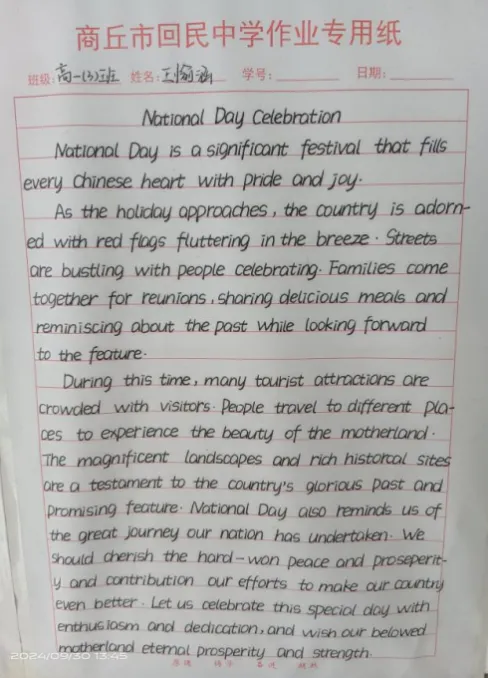 商丘市回民中学作业专用纸
班级: 高一(3)班 姓名: 王愉涵 学号: 日期:
National Day Celebration
National Day is a significant festival that fills
every Chinese heart with pride and joy.
As the holiday approaches, the country is adorn-
ed with red flags fluttering in the breeze. Streets
are bustling with people celebrating. Families come
together for reunions, sharing delicious meals and
reminiscing about the past while looking forward
to the feature.
During this time, many tourist attractions are
crowded with visitors. People travel to different pla-
ces to experience the beauty of the motherland.
The magnificent landscapes and rich historcal sites
are a testament to the country's glorious past and
promising feature. National Day also reminds us of
the great journey our nation has undertaken. We
should cherish the hard-won peace and proseperit-
y and contribution our efforts to make our country
even better. Let us celebrate this special day with
enthusiasm and dedication, and wish our belowed
motherland eternal prosperity and strength.
2024/09/30 13:45